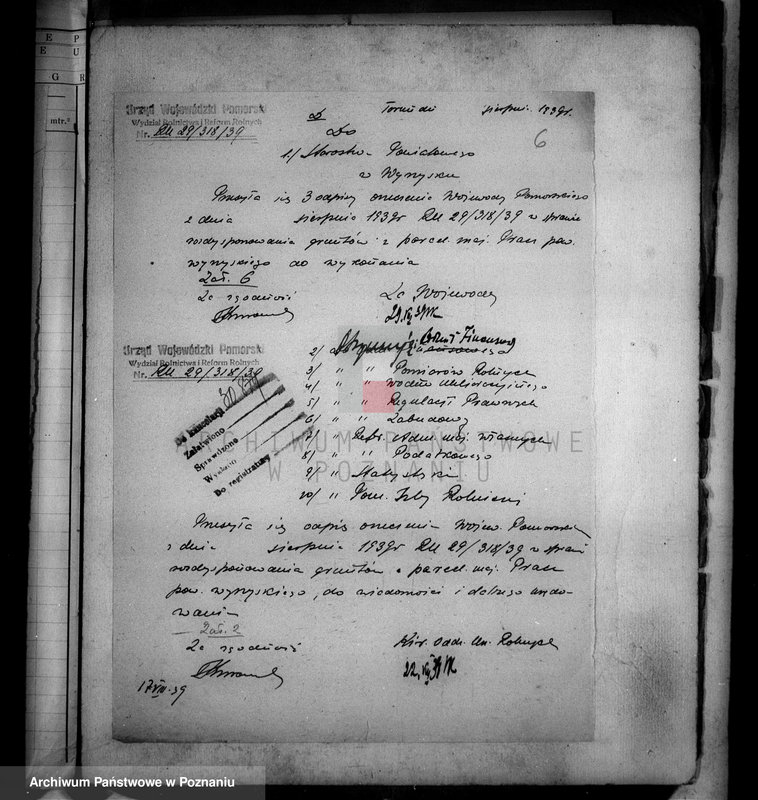 E P
E U
G R
mtr.²
Urząd Wojewódzki Pomorski
Wydział Rolnictwa i Reform Rolnych
Nr. RU 29/318/39
Toruń dn. sierpnia 1939 r.
6
Do
1./ Starostwa Powiatowego
w Wyrzysku
Przesyła się 3 odpisy orzeczenia Wojewody Pomorskiego
z dnia sierpnia 1939 r RU 29/318/39 w sprawie
rozdysponowania gruntów z parcel. maj. Pracz pow.
wyrzyskiego do wykonania
Zał. 6
Za zgodność
Za Wojewodę
Urząd Wojewódzki Pomorski
Wydział Rolnictwa i Reform Rolnych
Nr. RU 29/318/39
2/
3/ " " Pomiarów Rolnych
4/ " " Wodno Melioracyjnego
5/ " " Regulacji Prawnych
6/ " " Zabudowy
7/ " Refer. Adm. maj.
8/ " Podatkowego
9/ " Statystyki
10/ " Pom. Izby Rolniczej
Do kancelarji
Załatwiono
Sprawdzono
Wysłano
Do registratury
ARCHIWUM PAŃSTWOWE
W POZNANIU
Przesyła się odpis orzeczenia Wojew. Pomorskiego
z dnia sierpnia 1939 r RU 29/318/39 w sprawie
rozdysponowania gruntów z parcel. maj. Pracz
pow. wyrzyskiego, do wiadomości i dalszego urzędo-
wania
Zał. 2
Za zgodność
Kier. Oddz. Urz. Rolnych
17 VIII 39
Archiwum Państwowe w Poznaniu